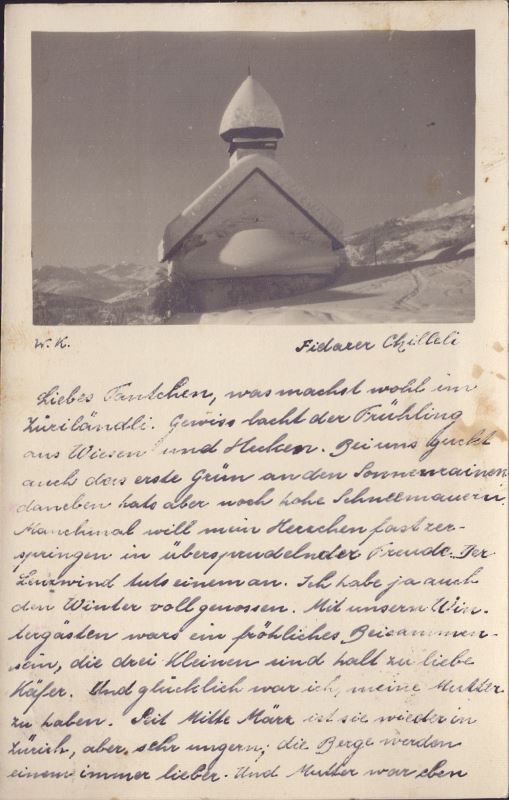 W. K. Fidarer Chilleli
Liebes Tantchen, was machst wohl im
Züriländli. Gewiss lacht der Frühling
aus Wiesen und Hecken. Bei uns guckt
auch das erste Grün an den Sonnenrainen
daneben hats aber noch hohe Schneemauern.
Manchmal will mein Herzchen fast zer-
springen in übersprudelnder Freude. Der
Lenzwind tuts einem an. Ich habe ja auch
den Winter voll genossen. Mit unsern Win-
tergästen wars ein fröhliches Beisammen-
sein, die drei Kleinen sind halt zu liebe
Käfer. Und glücklich war ich, meine Mutter
zu haben. Seit Mitte März ist sie wieder in
Zürich, aber sehr ungern; die Berge werden
einem immer lieber. Und Mutter war eben